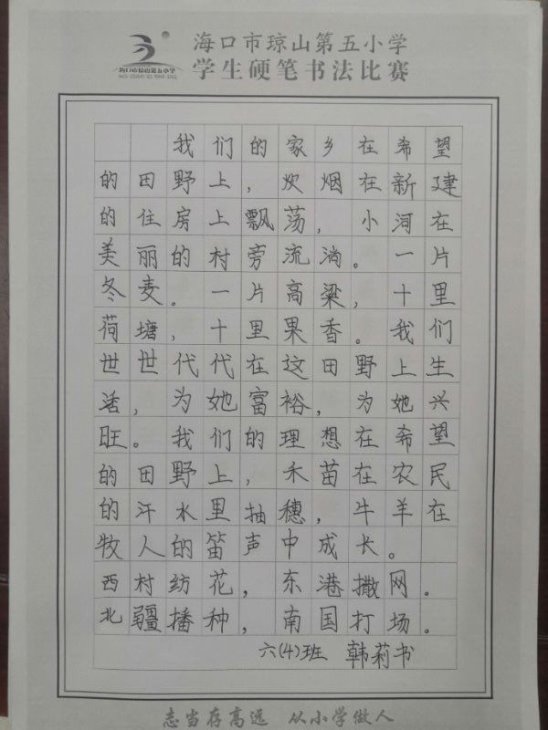 海口市琼山第五小学
学生硬笔书法比赛
海口市琼山第五小学
我们的家乡在希望
的田野上，炊烟在新建
的住房上飘荡，小河在
美丽的村旁流淌。一片
冬麦。一片高粱，十里
荷塘，十里果香。我们
世世代代在这田野上生
活，为她富裕，为她兴
旺。我们的理想在希望
的田野上，禾苗在农民
的汗水里抽穗，牛羊在
牧人的笛声中成长。
西村纺花，东港撒网。
北疆播种，南国打场。
六(4)班 韩莉书
志当存高远 从小学做人